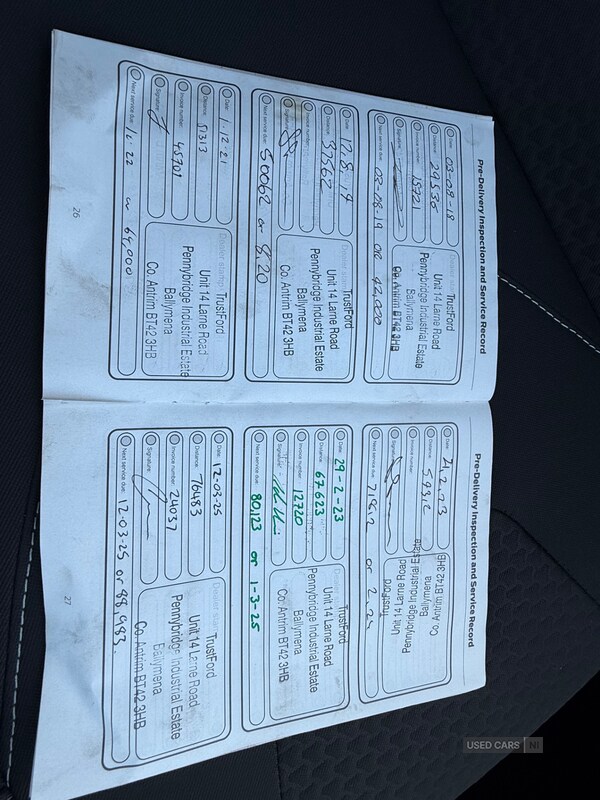 Pre-Delivery Inspection and Service Record
Date: 03-08-18
Distance: 29536
Invoice number: 15721
Signature:
Next service due: 03-08-19 OR 42,000
TrustFord
Unit 14 Larne Road
Pennybridge Industrial Estate
Ballymena
Co. Antrim BT42 3HB
Date: 12.8.19
Distance: 37562
Invoice number:
Signature:
Next service due: 50062 or 8.20
TrustFord
Unit 14 Larne Road
Pennybridge Industrial Estate
Ballymena
Co. Antrim BT42 3HB
Date: 1.12.21
Distance: 51313
Invoice number: 45701
Signature:
Next service due: 11.22 or 64,000
Dealer stamp
TrustFord
Unit 14 Larne Road
Pennybridge Industrial Estate
Ballymena
Co. Antrim BT42 3HB
26
Pre-Delivery Inspection and Service Record
Date: 21.2.23
Distance: 59312
Invoice number:
Signature:
Next service due: 71812 or 2.24
TrustFord
Unit 14 Larne Road
Pennybridge Industrial Estate
Ballymena
Co. Antrim BT42 3HB
Date: 29-2-23
Distance: 67623
Invoice number: 12720
Signature:
Next service due: 80,123 or 1-3-25
TrustFord
Unit 14 Larne Road
Pennybridge Industrial Estate
Ballymena
Co. Antrim BT42 3HB
Date: 12-03-25
Distance: 76483
Invoice number: 24037
Signature:
Next service due: 12-03-25 or 88,983.
Dealer stamp
TrustFord
Unit 14 Larne Road
Pennybridge Industrial Estate
Ballymena
Co. Antrim BT42 3HB
27
USED CARS NI